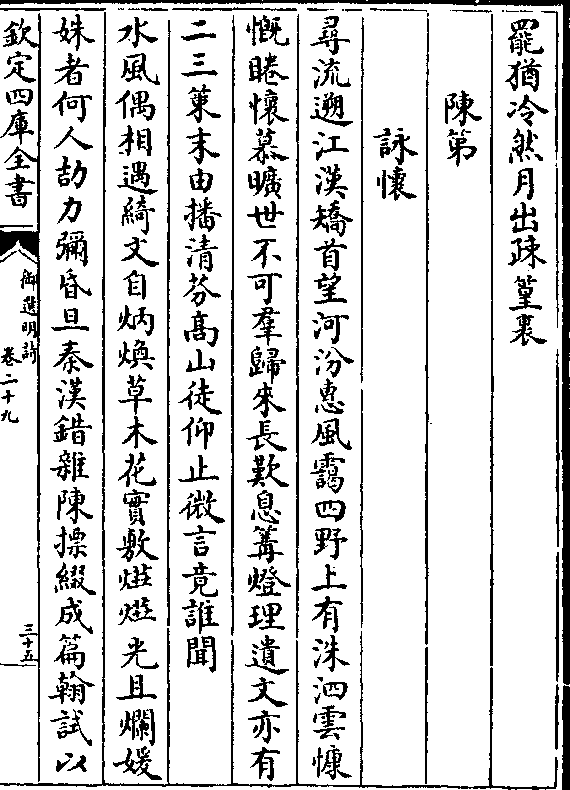 罷猶冷然月出疎篁裏
陳第
詠懷
尋流遡江漢矯首望河汾惠風靄四野上有洙泗雲慷
慨睠懷慕曠世不可羣歸來長歎息篝燈理遺文亦有
二三策末由播清芬髙山徒仰止微言竟誰聞
水風偶相遇綺文自炳煥草木花實敷𤇺𤇺光且爛媛
姝者何人劼力彌昏旦秦漢錯雜陳摽綴成篇翰試以
欽定四庫全書
御選明詩
卷二十九
三十五